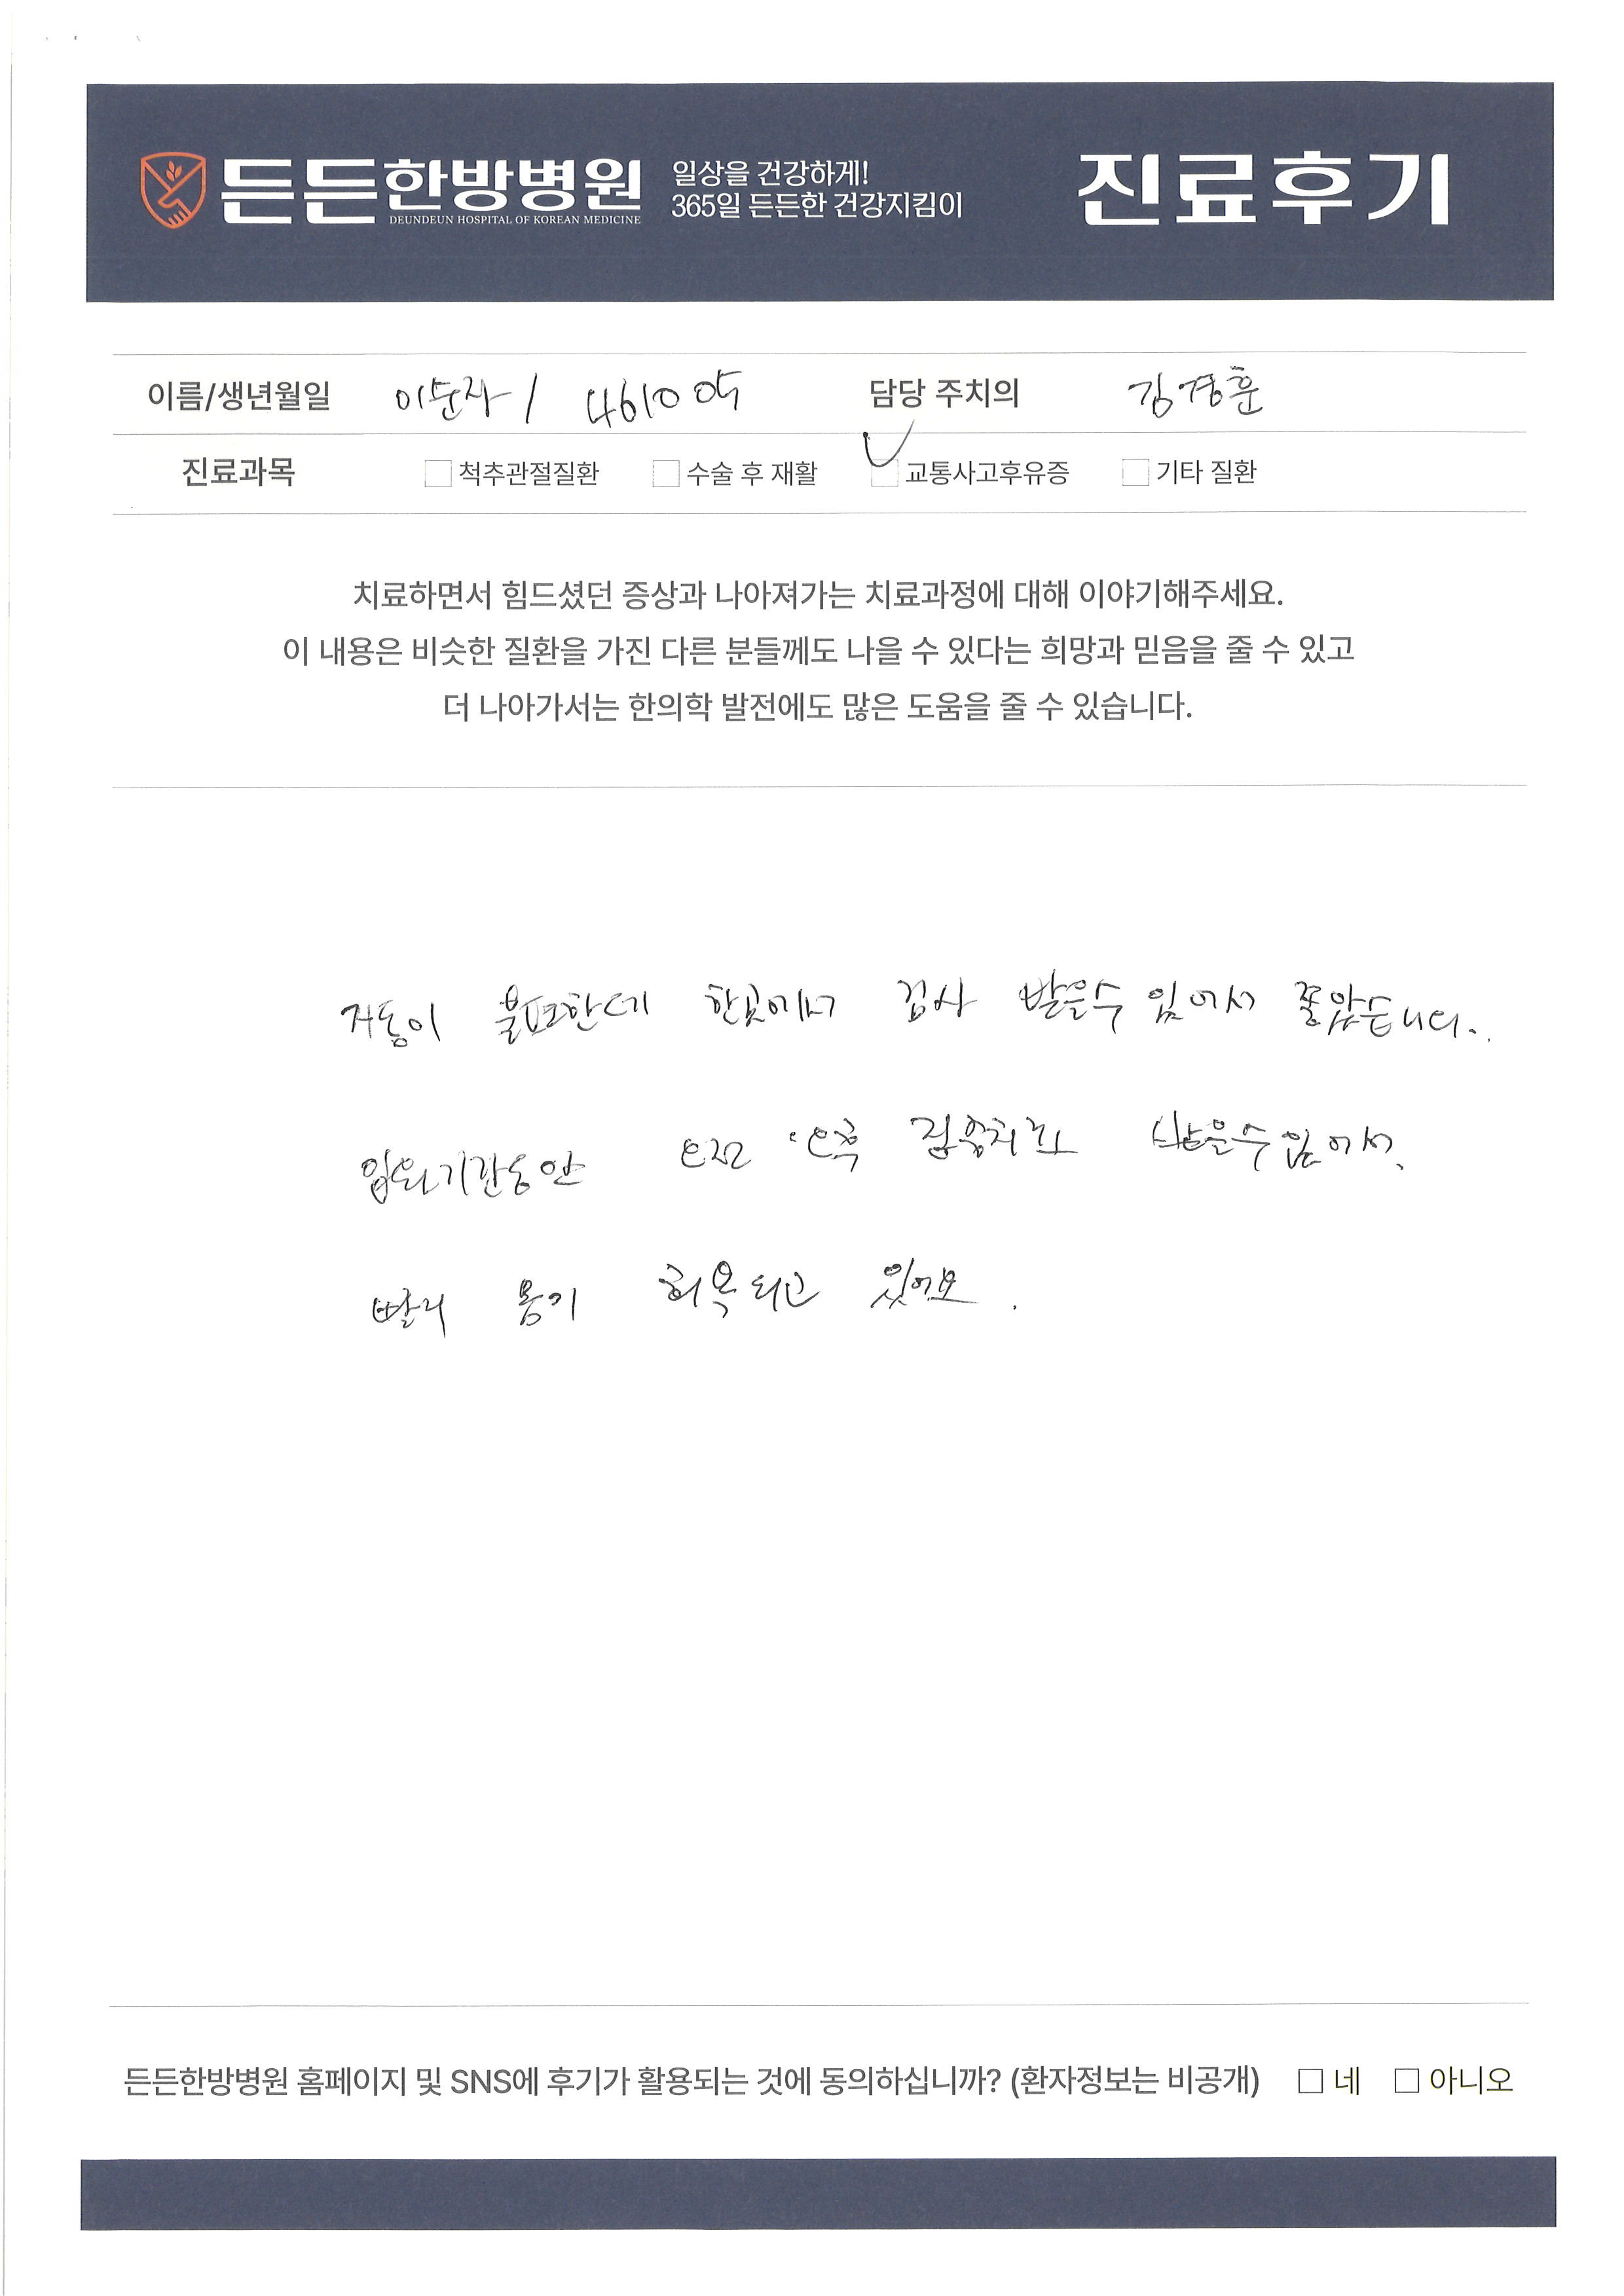 든든한방병원
DEUNDEUN HOSPITAL OF KOREAN MEDICINE
일상을 건강하게!
365일 든든한 건강지킴이
진료후기
이름/생년월일 이순자 / 461005 담당 주치의 김경훈
진료과목 척추관절질환 수술 후 재활 교통사고후유증 기타 질환
치료하면서 힘드셨던 증상과 나아져가는 치료과정에 대해 이야기해주세요.
이 내용은 비슷한 질환을 가진 다른 분들께도 나을 수 있다는 희망과 믿음을 줄 수 있고
더 나아가서는 한의학 발전에도 많은 도움을 줄 수 있습니다.
거동이 불편한데 한곳에서 검사 받을수 있어서 좋았습니다.
입원기간동안 오전 오후 집중치료 받을수 있어서
빨리 몸이 회복되고 있어요.
든든한방병원 홈페이지 및 SNS에 후기가 활용되는 것에 동의하십니까? (환자정보는 비공개) 네 아니오